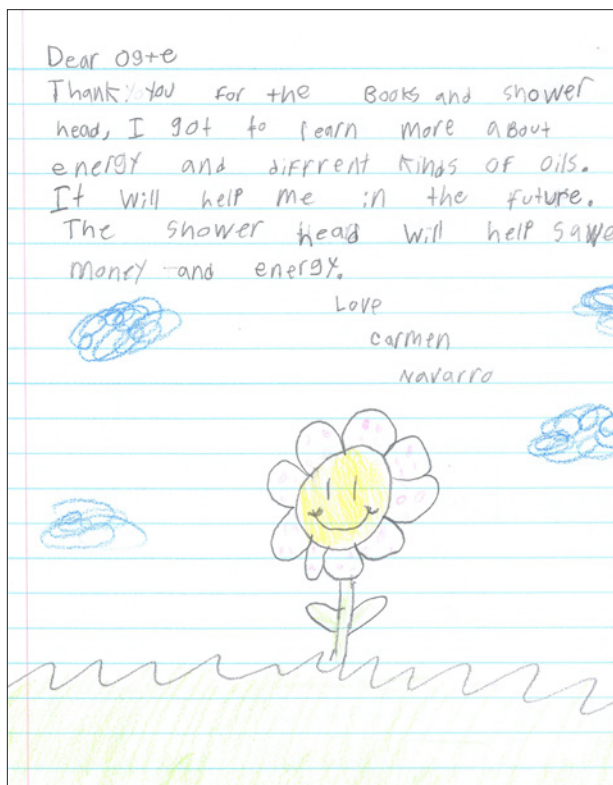 Dear Og+e
Thank you for the Books and shower
head, I got to learn more about
energy and diffrent kinds of oils.
It will help me in the future.
The shower head will help save
money and energy.
Love
Carmen
Navarro